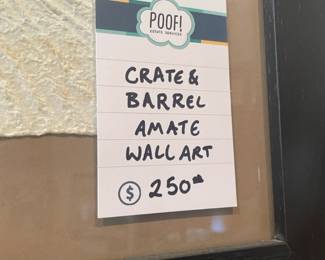 POOF!
ESTATE SERVICES
CRATE &
BARREL
AMATE
WALL ART
$ 250